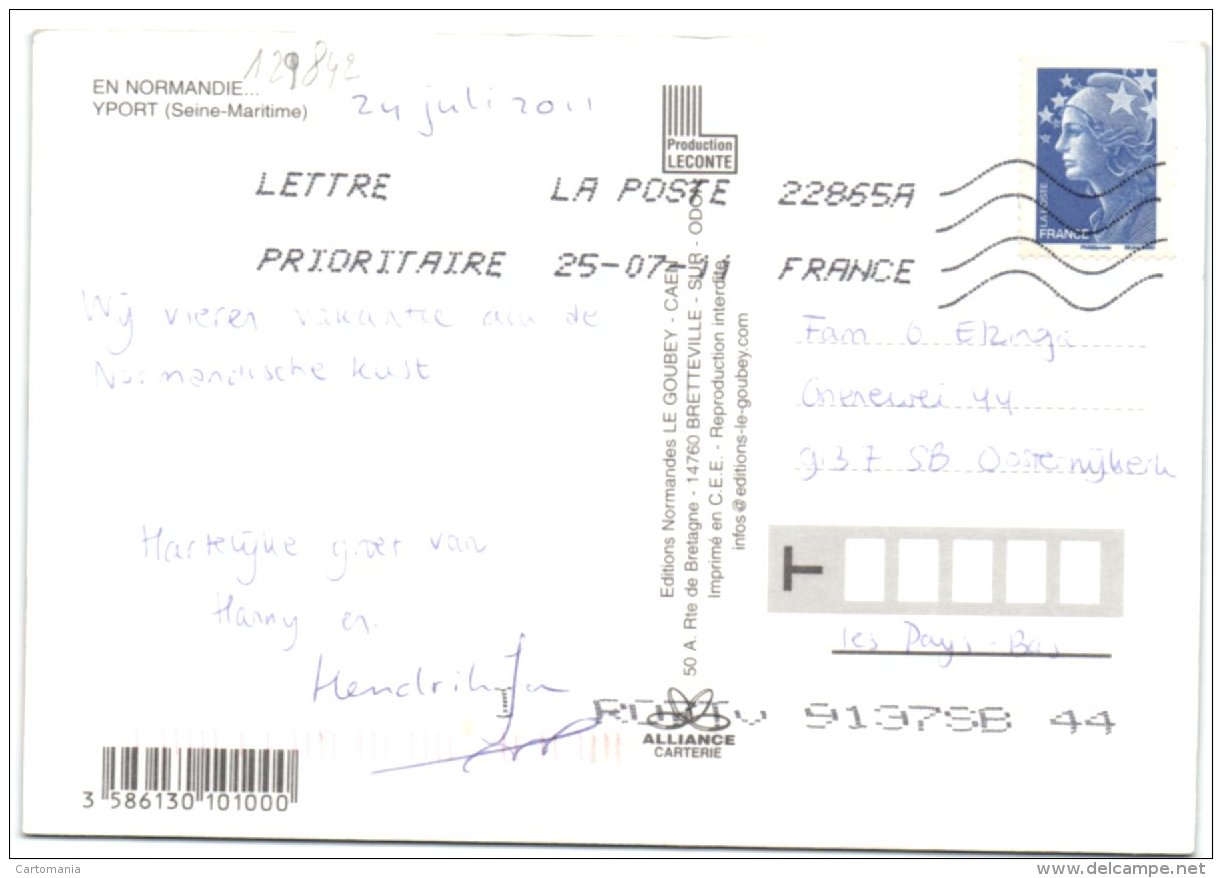 EN NORMANDIE...
YPORT (Seine-Maritime)
129842
24 juli 2011
LETTRE
PRIORITAIRE
LA POSTE 22865A
25-07-11 FRANCE
LA POSTE
FRANCE
Wij vieren vakantie aan de
Normandische kust
Hartelijke groet van
Hanny en
Hendrik Jan
Production
LECONTE
Editions Normandes LE GOUBEY - CAEN
50 A. Rte de Bretagne - 14760 BRETTEVILLE - SUR - ODON
Imprimé en C.E.E. - Reproduction interdite
infos@editions-le-goubey.com
Fam O Elzinga
44
9137 SB Oosternijkerk
T
les Pays-Bas
9137SB 44
ALLIANCE
CARTERIE
3 586130 101000
Cartomania
www.delcampe.net